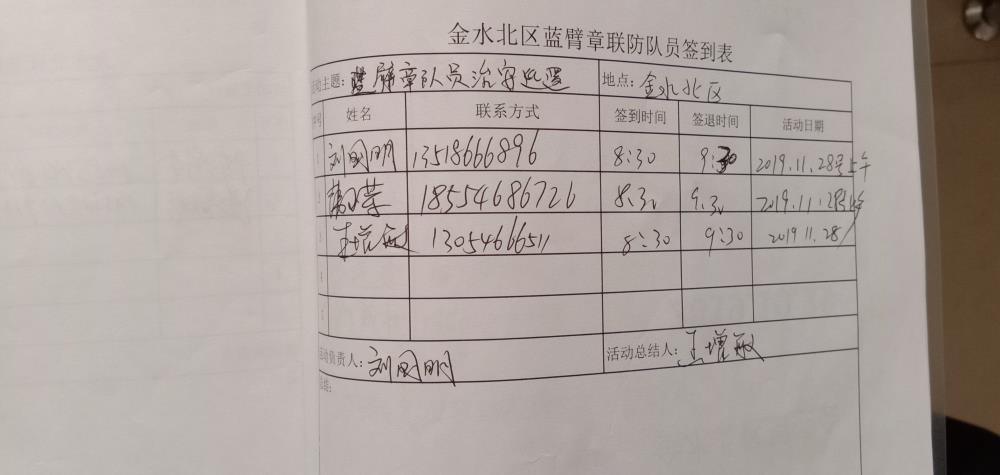 金水北区蓝臂章联防队员签到表
活动主题：蓝臂章队员治安巡逻 地点：金水北区
序号 姓名 联系方式 签到时间 签退时间 活动日期
1 刘国明 13518666896 8:30 9:30 2019.11.28号上午
2 18554686726 8:30 9:30 2019.11.28号上午
3 王增敏 13054666511 8:30 9:30 2019.11.28
4
5
活动负责人：刘国明 活动总结人：王增敏
总结：